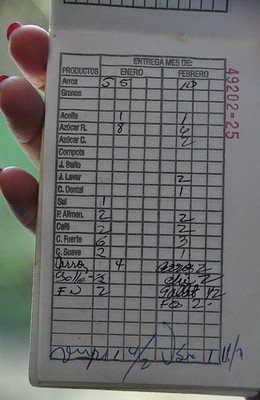 ENTREGA MES DE:
PRODUCTOS ENERO FEBRERO
Arroz 5 5 10
Granos
Aceite 1 1
Azúcar R. 8 6
Azúcar C. 2
Compota
J. Baño
J. Lavar 2 2
C. Dental 1
Sal 1
P. Alimen. 2 2
Café 2 2
C. Fuerte 6 3
C. Suave 2 1
4 2
2
F N 2
2
49202-25